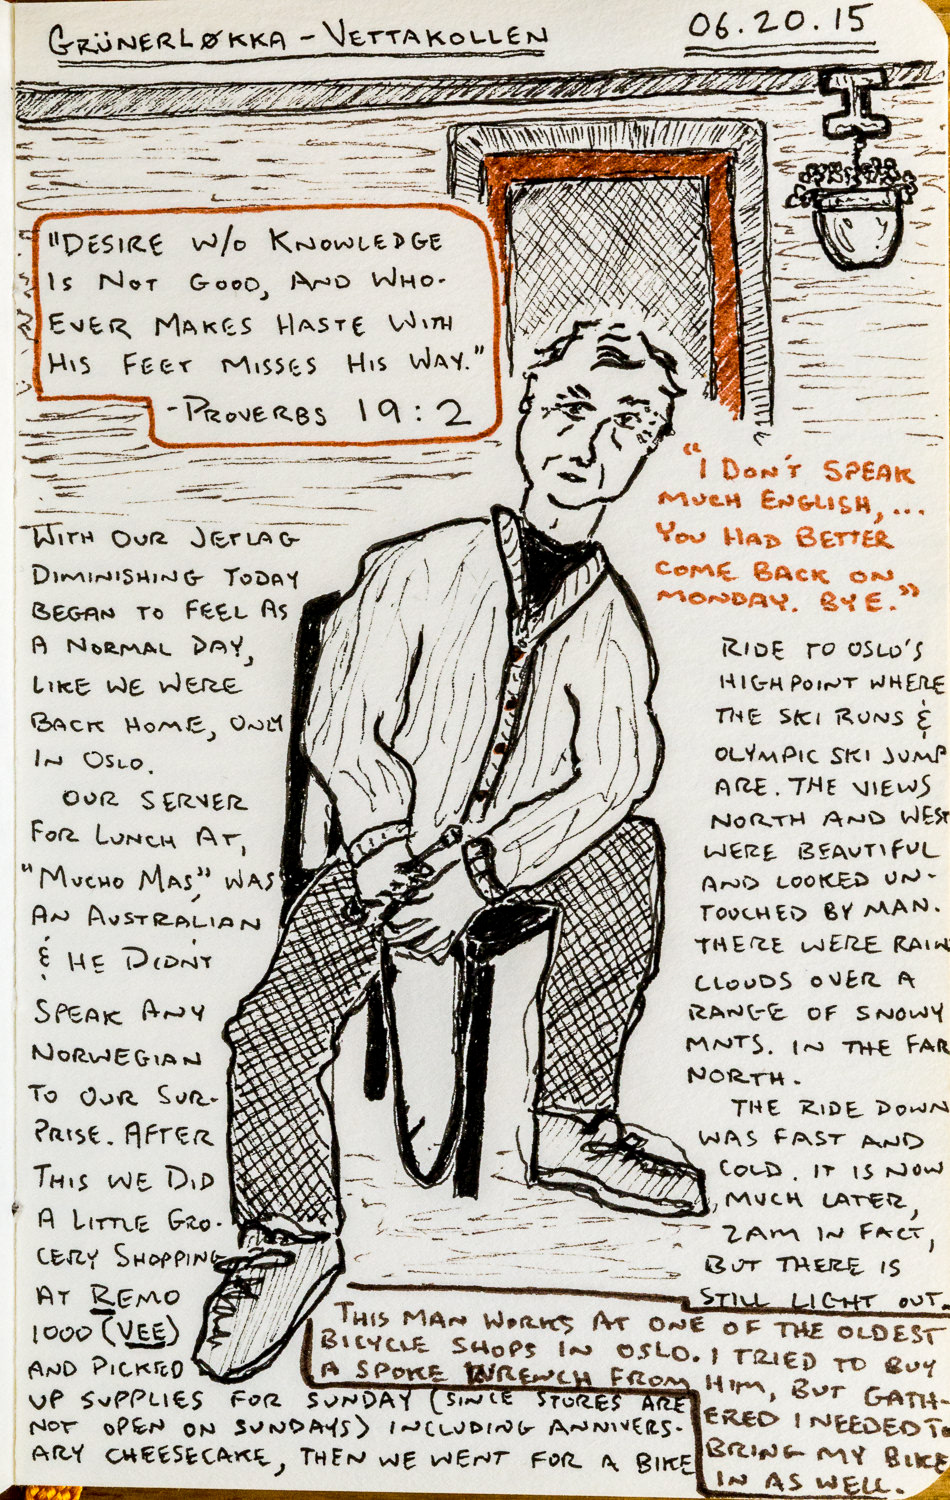 GRÜNERLØKKA - VETTAKOLLEN
06.20.15
"DESIRE W/O KNOWLEDGE
IS NOT GOOD, AND WHO-
EVER MAKES HASTE WITH
HIS FEET MISSES HIS WAY."
-PROVERBS 19:2
"I DON'T SPEAK
MUCH ENGLISH,...
YOU HAD BETTER
COME BACK ON
MONDAY. BYE."
WITH OUR JETLAG
DIMINISHING TODAY
BEGAN TO FEEL AS
A NORMAL DAY,
LIKE WE WERE
BACK HOME, ONLY
IN OSLO.
OUR SERVER
FOR LUNCH AT,
"MUCHO MAS," WAS
AN AUSTRALIAN
& HE DIDN'T
SPEAK ANY
NORWEGIAN
TO OUR SUR-
PRISE. AFTER
THIS WE DID
A LITTLE GRO-
CERY SHOPPING
AT REMO
1000 (VEE)
AND PICKED
UP SUPPLIES FOR SUNDAY (SINCE STORES ARE
NOT OPEN ON SUNDAYS) INCLUDING ANNIVERS-
ARY CHEESECAKE, THEN WE WENT FOR A BIKE
RIDE TO OSLO'S
HIGHPOINT WHERE
THE SKI RUNS &
OLYMPIC SKI JUMP
ARE. THE VIEWS
NORTH AND WEST
WERE BEAUTIFUL
AND LOOKED UN-
TOUCHED BY MAN.
THERE WERE RAIN
CLOUDS OVER A
RANGE OF SNOWY
MNTS. IN THE FAR
NORTH.
THE RIDE DOWN
WAS FAST AND
COLD. IT IS NOW
MUCH LATER,
2AM IN FACT,
BUT THERE IS
STILL LIGHT OUT.
THIS MAN WORKS AT ONE OF THE OLDEST
BICYCLE SHOPS IN OSLO. I TRIED TO BUY
A SPOKE WRENCH FROM HIM, BUT GATH-
ERED I NEEDED TO
BRING MY BIKE
IN AS WELL.